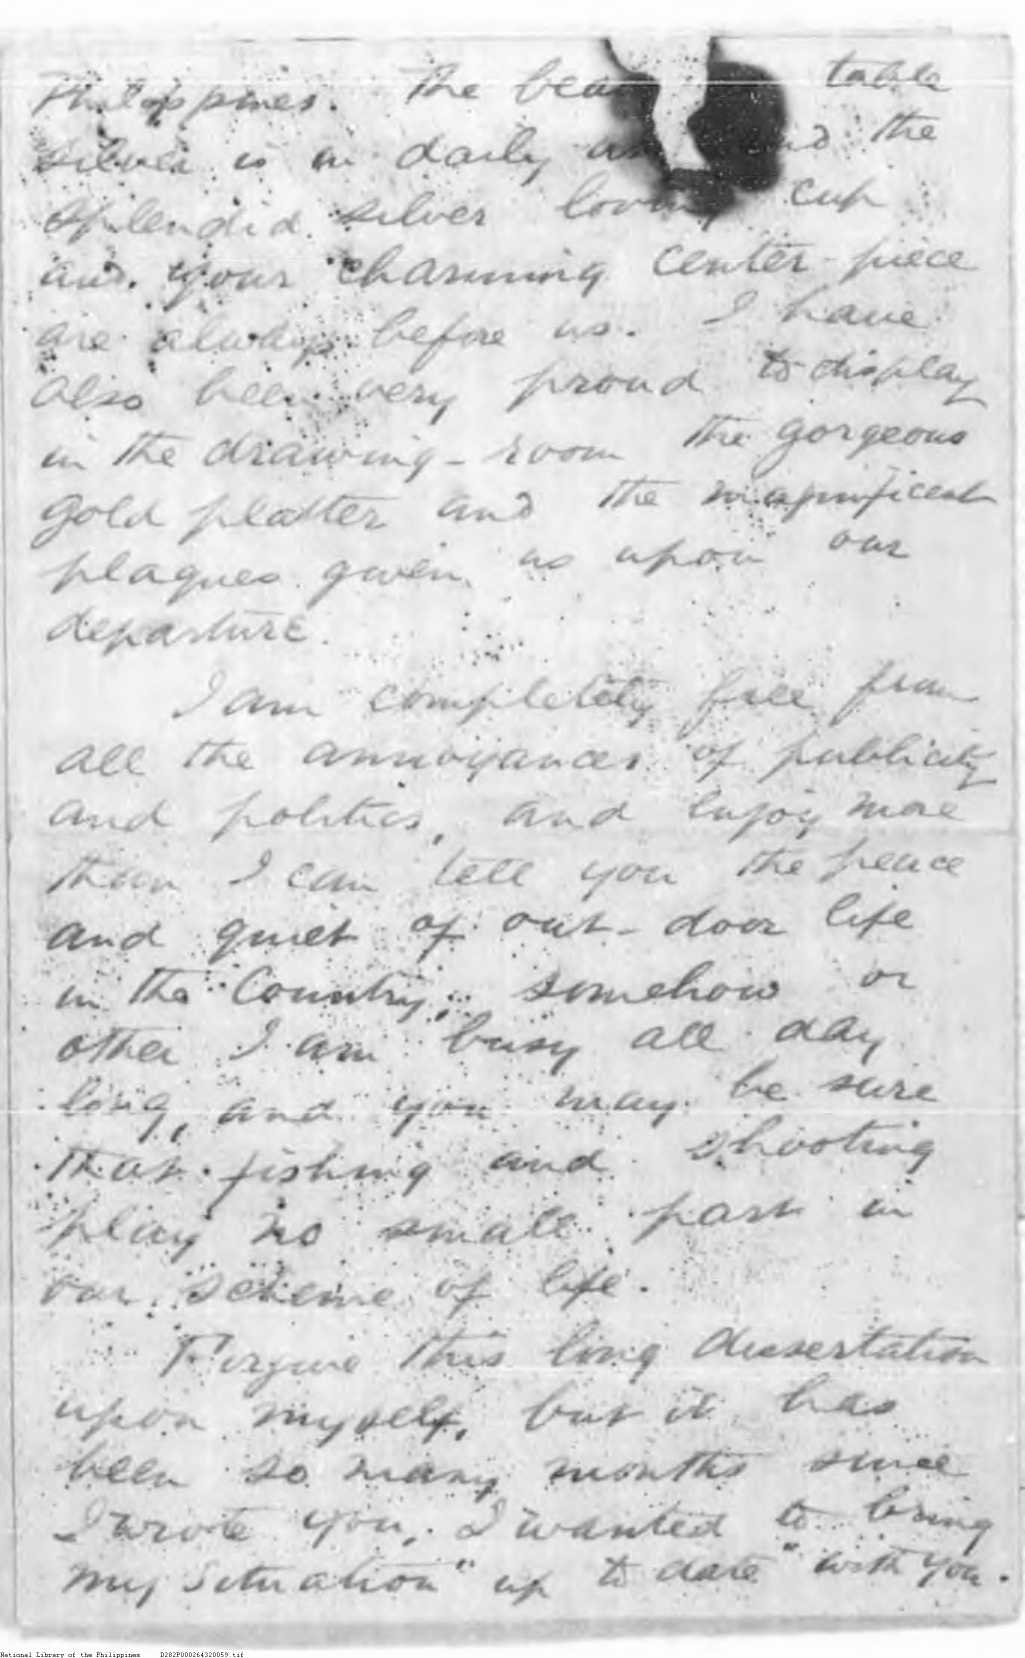 Philippines. The table
silver is in daily and the
splendid silver loving cup
and your charming center-piece
are always before us. I have
also been very proud to display
in the drawing-room the gorgeous
gold platter and the magnificent
plaques given us upon our
departure.
I am completely free from
all the annoyances of publicity
and politics, and enjoy more
than I can tell you the peace
and quiet of out-door life
in the Country; somehow or
other I am busy all day
long, and you may be sure
that fishing and shooting
play no small part in
our scheme of life.
Forgive this long dissertation
upon myself, but it has
been so many months since
I wrote you, I wanted to bring
my situation "up to date" with you.
National Library of the Philippines D282P000264320059.tif